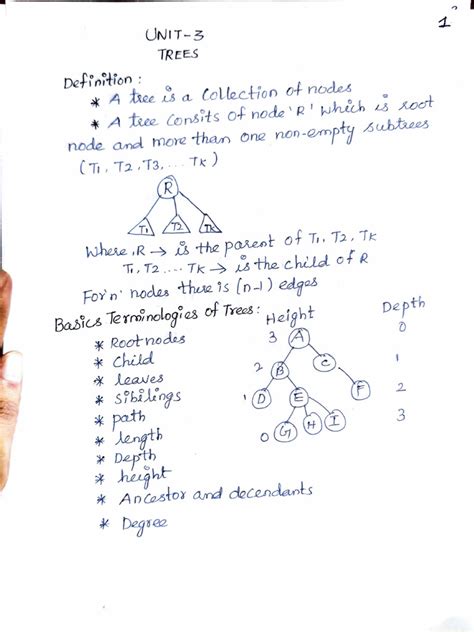 1
UNIT-3
TREES
Definition :
* A tree is a Collection of nodes
* A tree consits of node 'R' which is root
node and more than one non-empty subtrees
(T1, T2, T3, ... TK)
R
T1 T2 TK
Where, R → is the parent of T1, T2, TK
T1, T2 .... TK → is the child of R
For 'n' nodes there is (n-1) edges
Basics Terminologies of Trees :
* Root nodes
* Child
* leaves
* Sibilings
* path
* length
* Depth
* height
* Ancestor and decendants
* Degree
Height Depth
3 A 0
2 B C 1
1 D E F 2
0 G H I 3